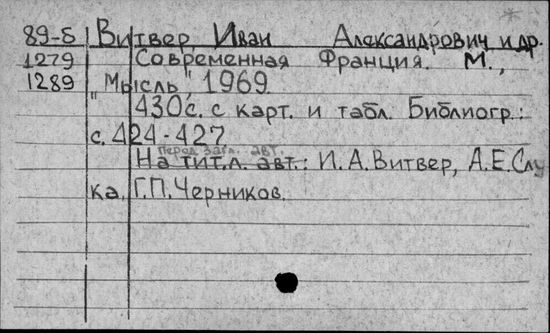 89-5 Витвер, Иван Александрович и др.
1279 Современная Франция. М.,
1289 "Мысль", 1969.
430с. с карт. и табл. Библиогр.:
с. 424-427
Перед загл. авт.
На тит.л. авт.: И.А.Витвер, А.Е.Слу
ка, Г.П.Черников.